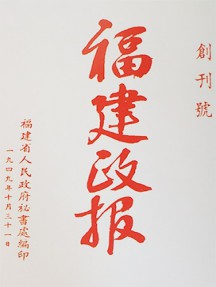 創刊號
福建政报
福建省人民政府祕書處編印
一九四九年十月三十一日